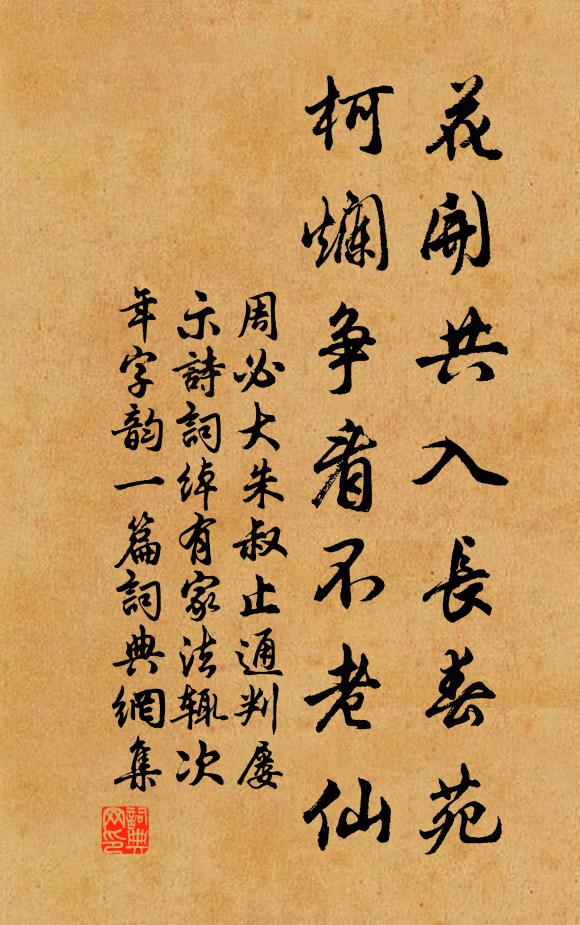 花開共入長春苑
柯爛争看不老仙
周必大朱叔止通判屡
示詩詞綽有家法輒次
年字韵一篇詞典網集
詞典网印